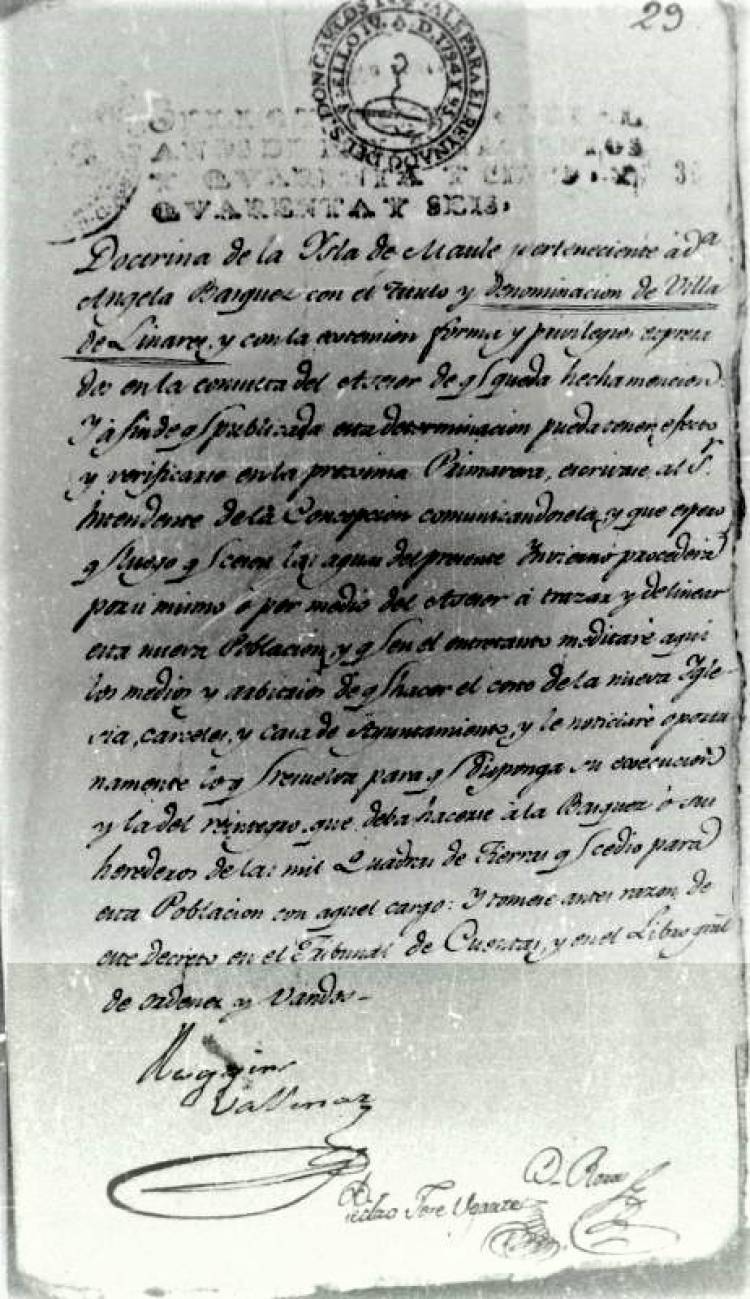 29
QVARENTA Y SEIS.
Doctrina de la Ysla de Maule perteneciente à dª
Angela Basquez con el titulo y denominacion de Villa
de Linares, y con la extension forma y privilegios expresa
dos en la consulta del Asesor de qe queda hecha mencion.
Y à fin de qe publicada esta determinacion pueda tener efecto
y verificarse en la proxima Primavera, escrivase al Sr.
Intendente de la Concepcion comunicandosela, y que espero
qe luego qe cesen las aguas del presente Invierno procederà
por si mismo ò por medio del Asesor à trazar y delinear
esta nueva Poblacion, y qe en el entretanto meditarè aqui
los medios y arbitrios de qe hacer el costo de la nueva Ygle
sia, carceles, y casa de Ayuntamiento, y le noticiarè oportu
namente lo qe resuelva para qe disponga su execucion
y la del reintegro que deba hacerse à la Basquez ò sus
herederos de las mil Quadras de tierras qe cedio para
esta Poblacion con aquel cargo: Y tomese antes razon de
este Decreto en el Tribunal de Cuentas, y en el Libro gral
de ordenes y Vandos-
Higgins
Vallenar
Dr. Rozas
Ugarte